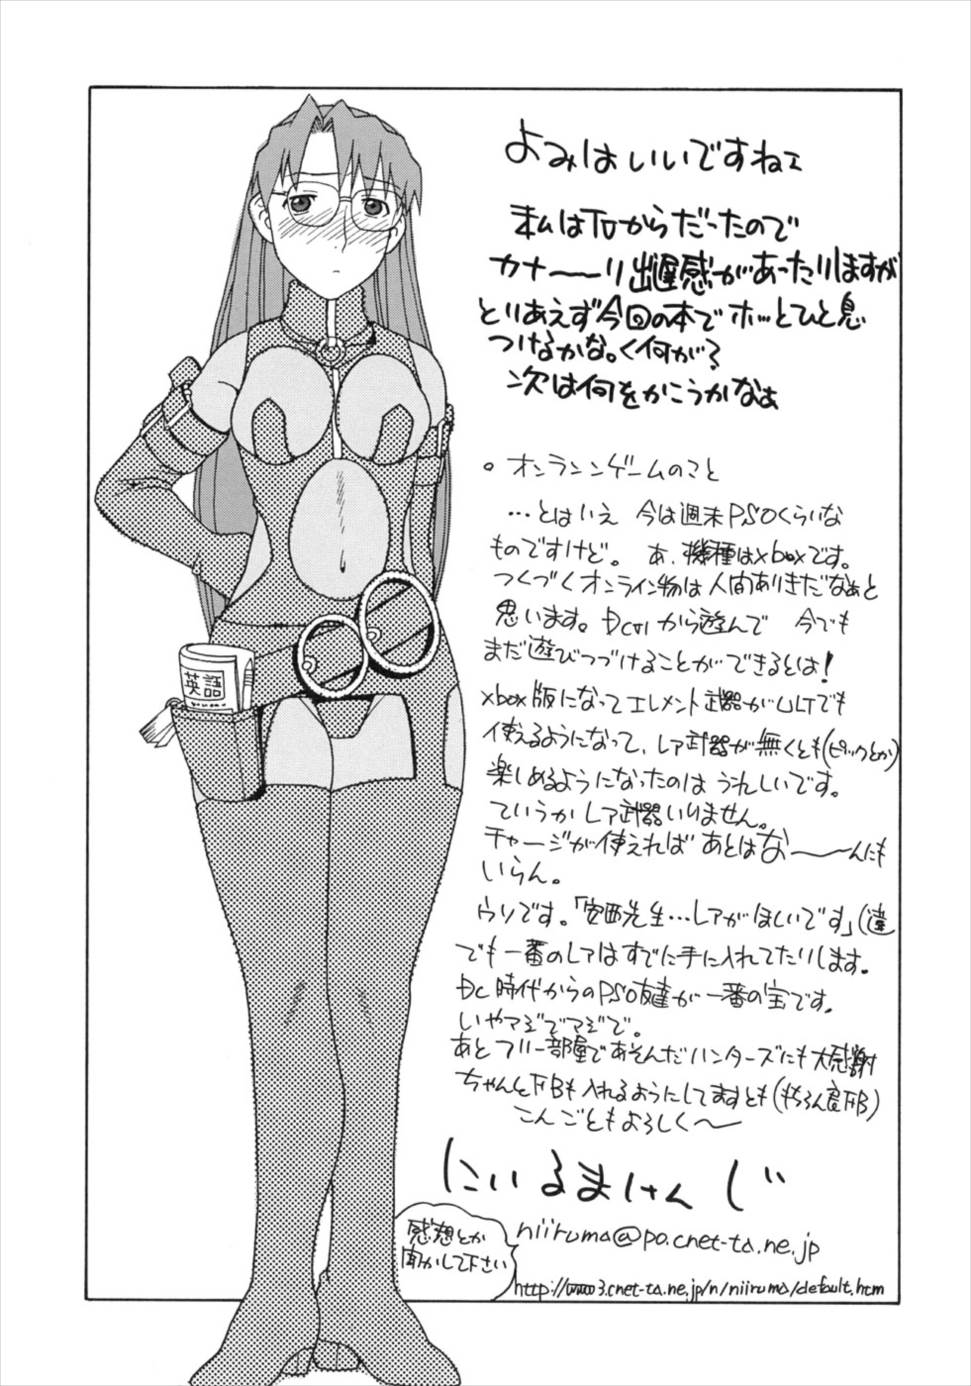 よみはいいですねェ
私はTVからだったので
カナ〜〜リ出遅感があったりしますが
とりあえず今回の本でホッとひと息
つけるかな。く何が?
次は何をかこうかなぁ
。オンランンゲームのこと
…とはいえ 今は週末PSOくらいな
ものですけど。 あ、機種はxboxです。
つくづくオンライン物は人間ありきだなぁと
思います。DCv1から遊んで 今でも
まだ遊びつづけることができるとは!
xbox版になってエレメント武器がULTでも
使えるようになって、レア武器が無くとも(ピックとか)
楽しめるようになったのは うれしいです。
ていうか レア武器いりません。
チャージが使えれば あとはな〜〜んにも
いらん。
ウソです。「安西先生…レアがほしいです」(違
でも一番のレアはすでに手に入れてたりします。
DC時代からのPSO友達が一番の宝です。
いやマジでマジで。
あと フリー部屋であそんだハンターズにも大感謝
ちゃんとFBも入れるようにしてますとも(もちろん FB)
こんごともよろしく〜
にいるまけんじ
niiruma@po.cnet-ta.ne.jp
http://www3.cnet-ta.ne.jp/n/niiruma/default.htm
感想とか
聞かして下さい
英語